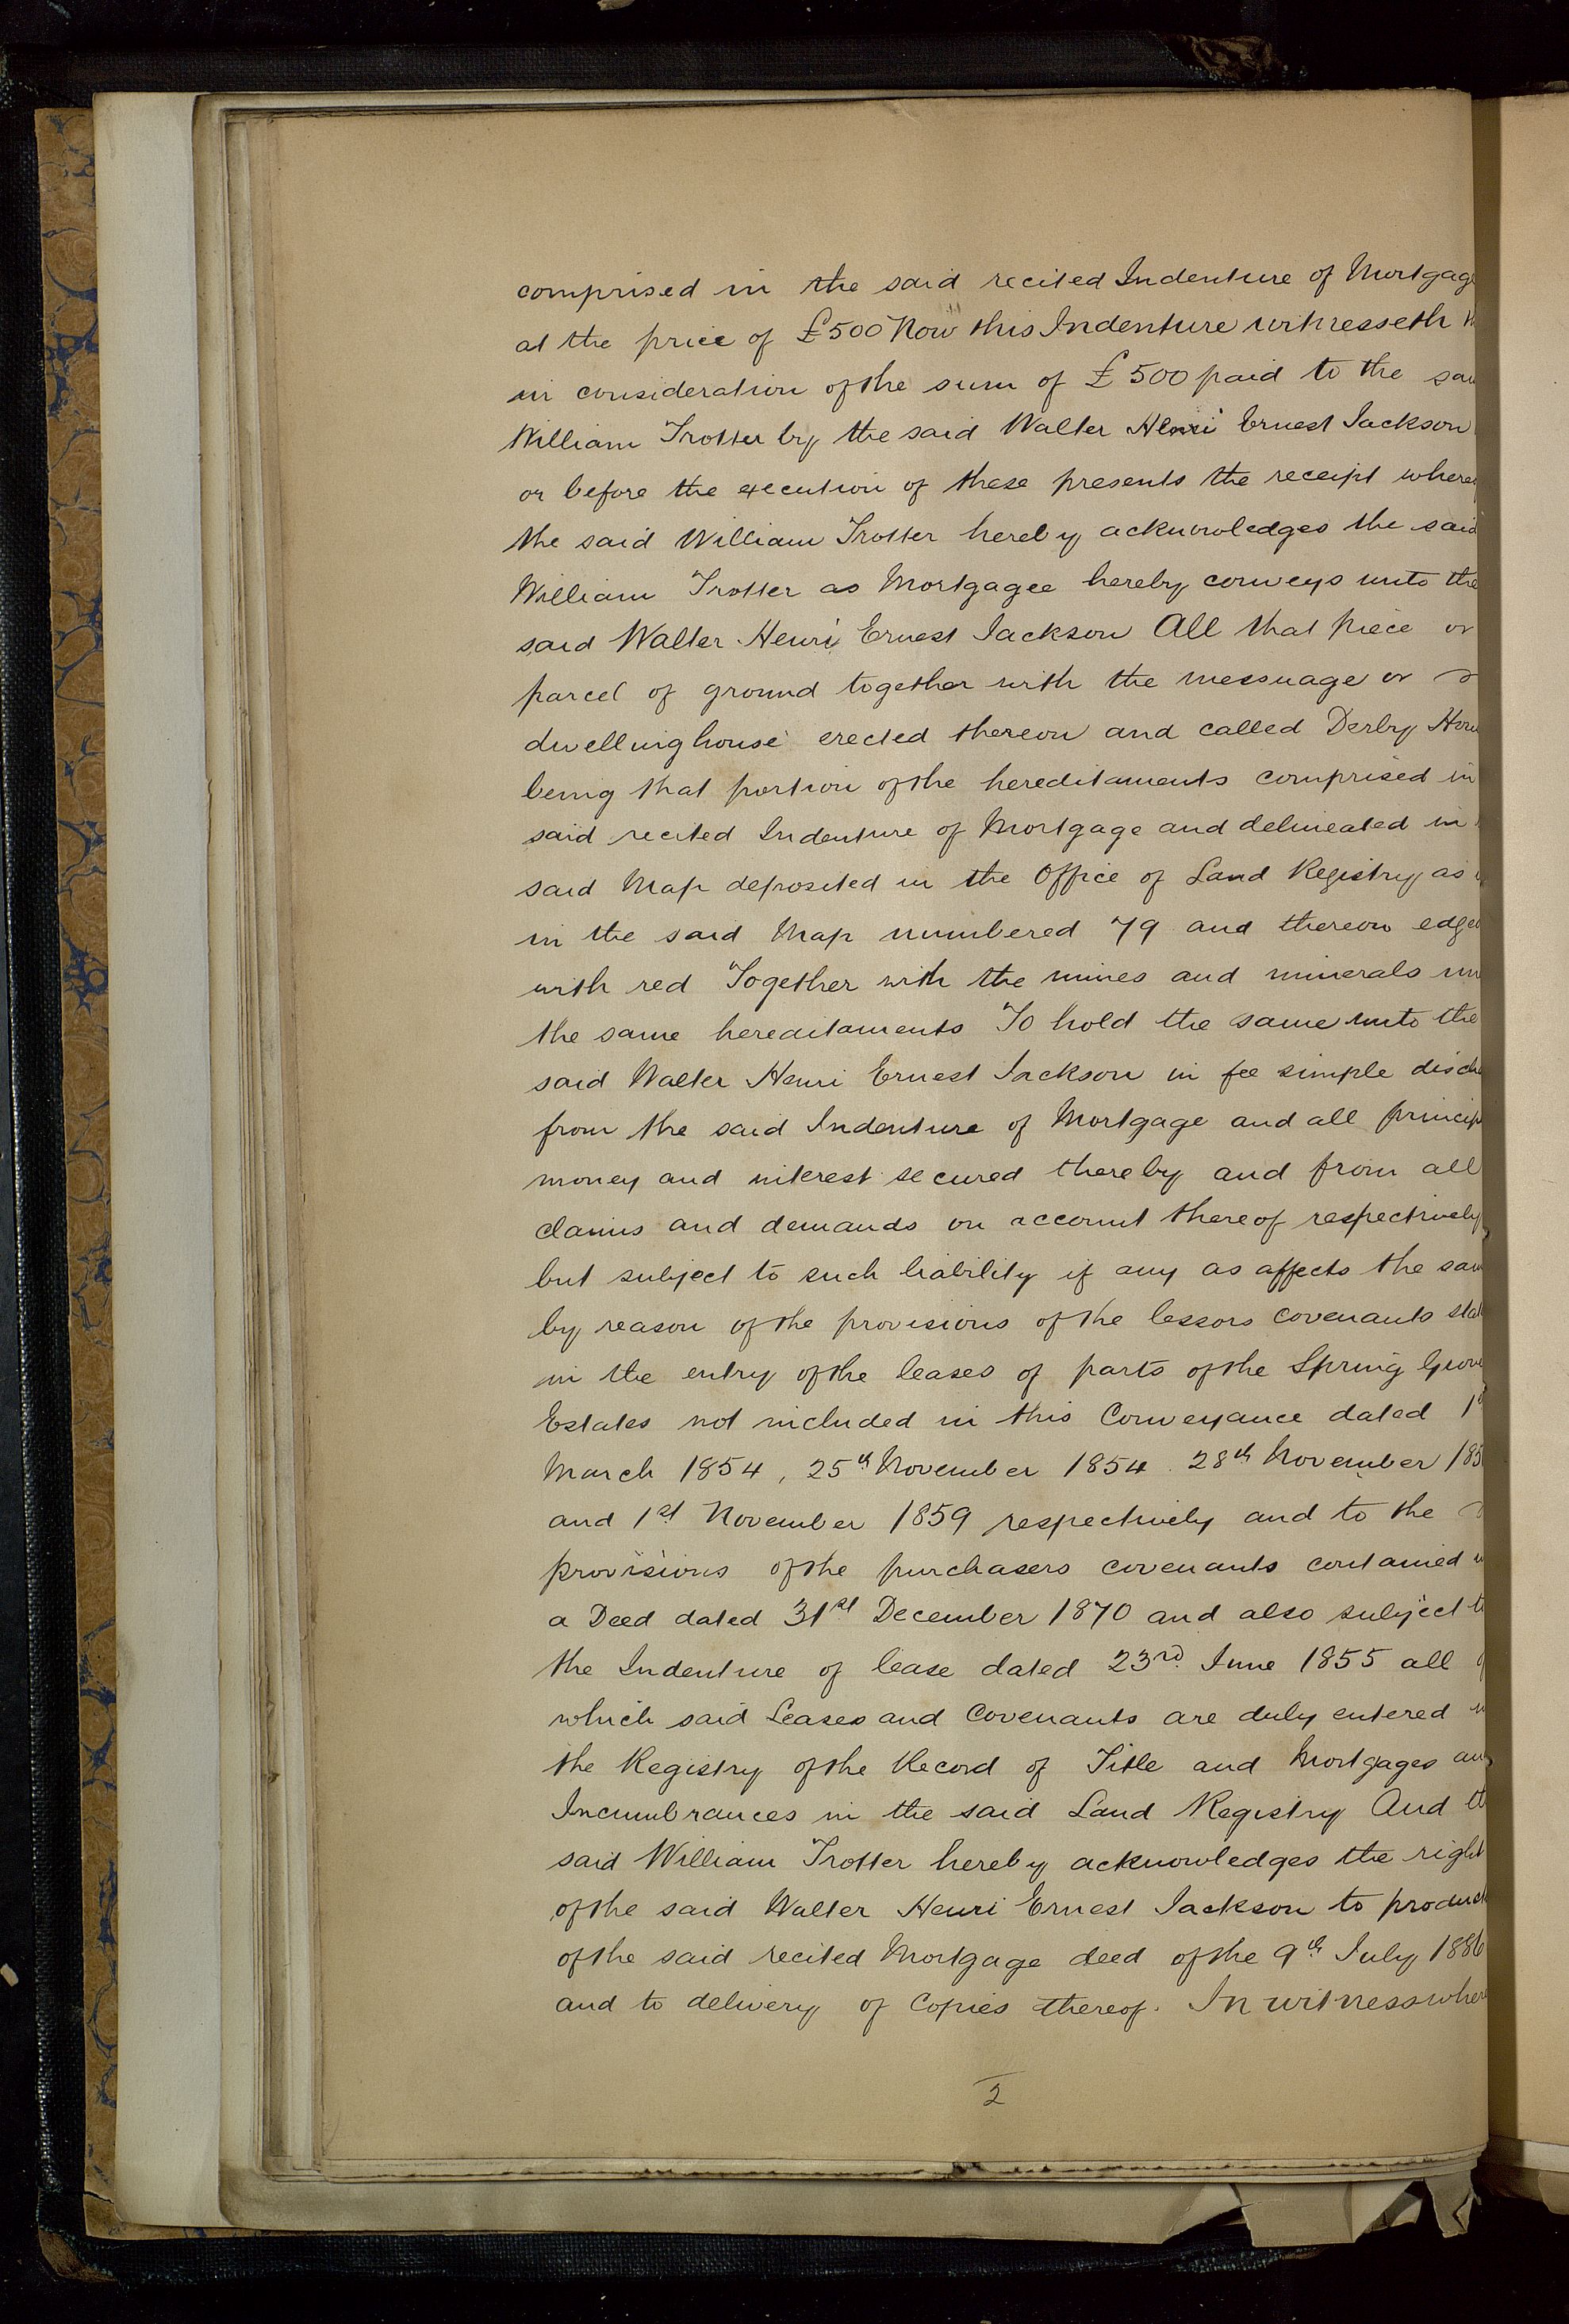 comprised in the said recited Indenture of Mortgag
at the price of £500 Now this Indenture witnesseth
in consideration of the sum of £500 paid to the sai
William Trotter by the said Walter Henri Ernest Jackson
or before the execution of these presents the receipt where
the said William Trotter hereby acknowledges the said
William Trotter as Mortgagee hereby conveys unto the
said Walter Henri Ernest Jackson All that piece or
parcel of ground together with the messuage or
dwellinghouse erected thereon and called Derby Hou
being that portion of the hereditaments comprised in
said recited Indenture of Mortgage and delineated in
said Map deposited in the Office of Land Registry as
in the said Map numbered 79 and thereon edged
with red Together with the mines and minerals un
the same hereditaments To hold the same unto the
said Walter Henri Ernest Jackson in fee simple discha
from the said Indenture of Mortgage and all princip
money and interest secured thereby and from all
claims and demands on account thereof respectively
but subject to such liability if any as affects the sam
by reason of the provisions of the lessors covenants stat
in the entry of the leases of parts of the Spring Grove
Estates not included in this Conveyance dated 1st
March 1854, 25th November 1854 28th November 185
and 1st November 1859 respectively and to the
provisions of the purchasers covenants contained
a Deed dated 31st December 1870 and also subject to
the Indenture of lease dated 23rd June 1855 all
which said Leases and Covenants are duly entered
the Registry of the Record of Title and Mortgages and
Incumbrances in the said Land Registry And th
said William Trotter hereby acknowledges the right
of the said Walter Henri Ernest Jackson to product
of the said recited Mortgage deed of the 9th July 1886
and to delivery of Copies thereof. In witness where
2